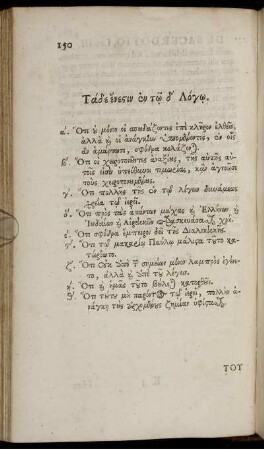 150
Τάδε ἔνεστιν ἐν τῷ δ' Λόγῳ.
α'. Ὅτι ὐ μόνον οἱ σπουδάζοντες ἐπὶ κλῆρον ἐλθεῖν,
ἀλλὰ κ οἱ ἀνάγκην ὑπομένοντες, ἐν οἷς
ἂν ἁμάρτωσι, σφόδρα κολάζον).
β'. Ὅτι οἱ χειροτονοῦντες ἀναξίους, τῆς αὐτῆς αὐ-
τοῖς εἰσιν ὑπεύθυνοι τιμωρίας, κἂν ἀγνοῶσι
τοὺς χειροτονουμένους.
γ'. Ὅτι πολλῆς τῆς ἐν τῷ λέγειν δυνάμεως
χρεία τῷ ἱερεῖ.
δ'. Ὅτι πρὸς τὰς ἁπάντων μάχας κ Ἑλλήνων κ
Ἰουδαίων κ Αἱρετικῶν παρεσκευάσθαι χρή.
ε'. Ὅτι σφόδρα ἔμπειρον δεῖ τῆς Διαλεκτικῆς.
ς'. Ὅτι τῷ μακαρίῳ Παύλῳ μάλιστα τοῦτο κατ-
ώρθωτο.
ζ'. Ὅτι Οὐκ ἀπὸ τ σημείων μόνον λαμπρὸς ἐγένε-
το, ἀλλὰ κ ἀπὸ τῦ λέγειν.
η'. Ὅτι κ ἡμᾶς τῦτο βούλε) κατορθοῦν.
θ'. Ὅτι τύτυ μὴ παρόντος τῷ ἱερεῖ, πολλὴν ἀ-
νάγκη τὺς ἀρχομένυς ζημίαν ὑφίστασθαι.
ΤΟΥ